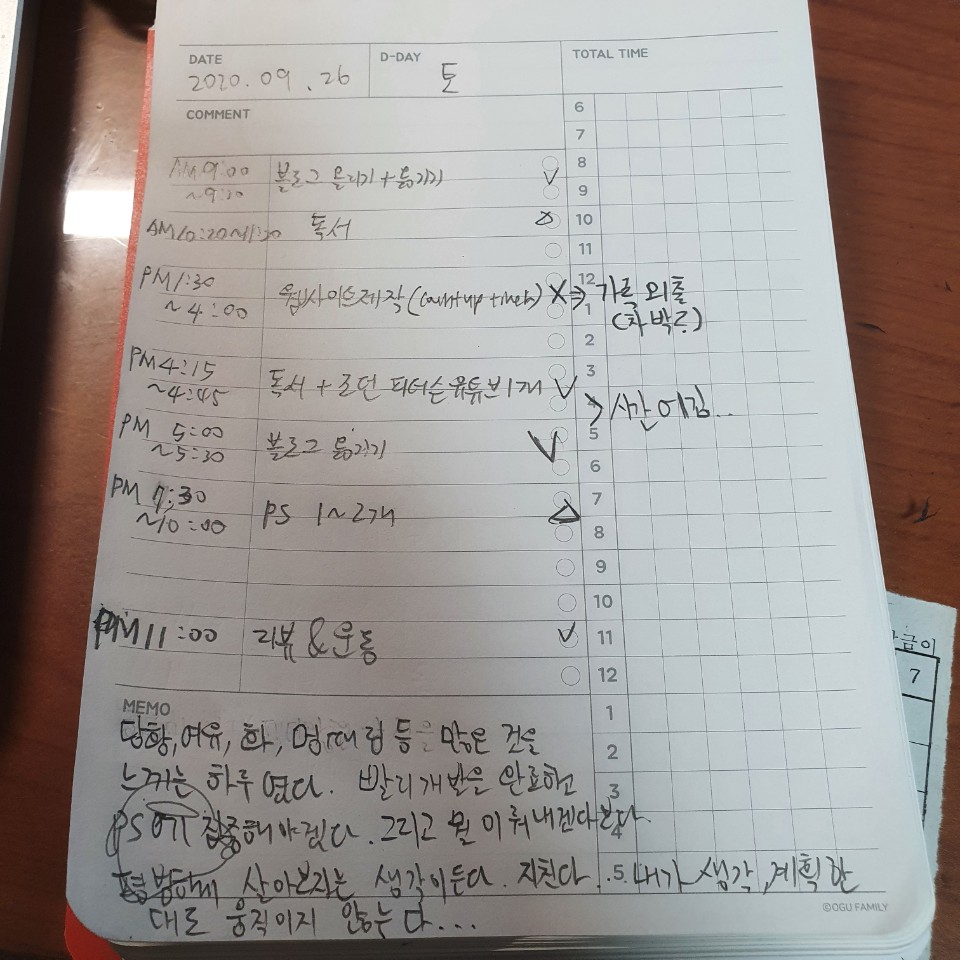 DATE
2020.09.26
D-DAY
토
TOTAL TIME
COMMENT
AM 9:00
~9:30
블로그 올리기 + 옮기기
AM 10:20~11:30 독서
PM 1:30
~4:00
웹사이트 제작 (count up timer) X ⇒ 가족 외출
(차박⋯)
PM 4:15
~4:45
독서 + 조던 피터슨 유튜브 1개
→ 시간 어김..
PM 5:00
~5:30
블로그 옮기기
PM 7:30
~10:00
PS 1~2개
PM 11:00
리뷰 & 운동
6
7
8
9
10
11
12
1
2
3
4
5
6
7
8
9
10
11
12
1
2
3
4
5
MEMO
당황, 여유, 화, 멍때림 등을 많은 것을
느끼는 하루였다. 빨리 개발을 완료하고
PS에 집중해야겠다. 그리고 뭘 이뤄내겠다
평범하게 살아보자는 생각이 든다. 지친다. 내가 생각, 계획한
대로 움직이지 않는다...
©OGU FAMILY
금이
7